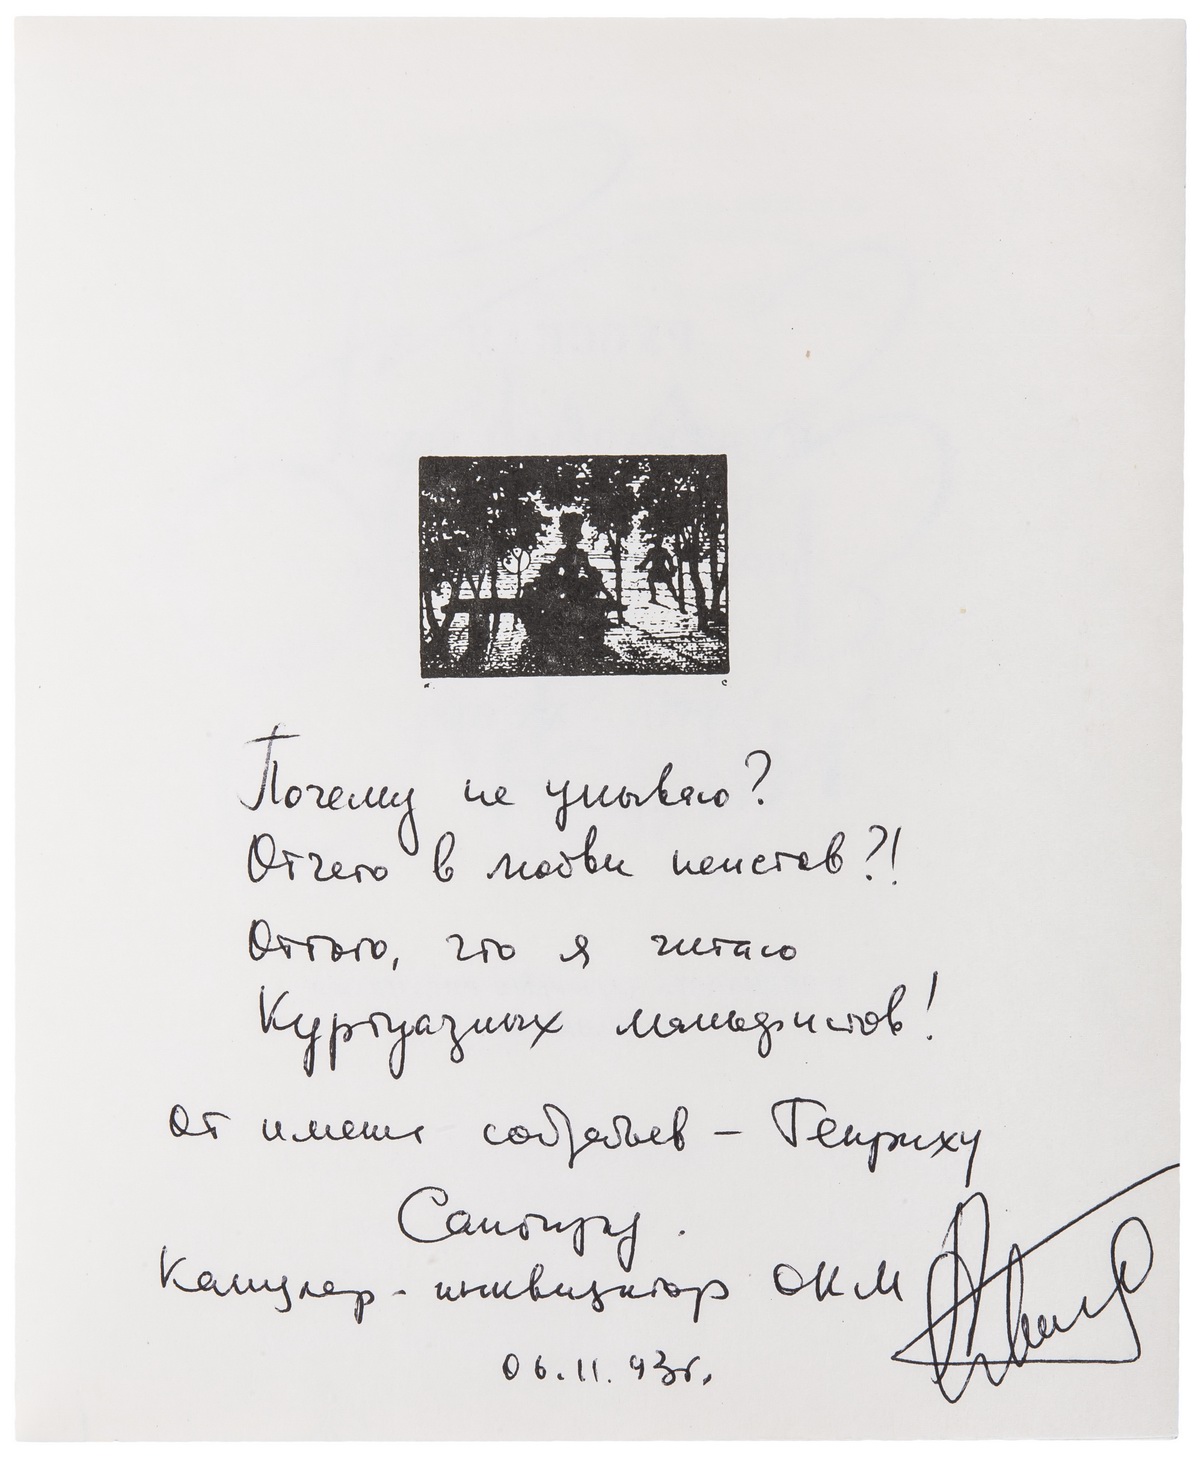 Почему не унываю?
Отчего в любви неистов?!
Оттого, что я читаю
Куртуазных маньеристов!
От имени собратьев – Генриху
Сапгиру.
Канцлер-инквизитор ОКМ
06.11.93г.